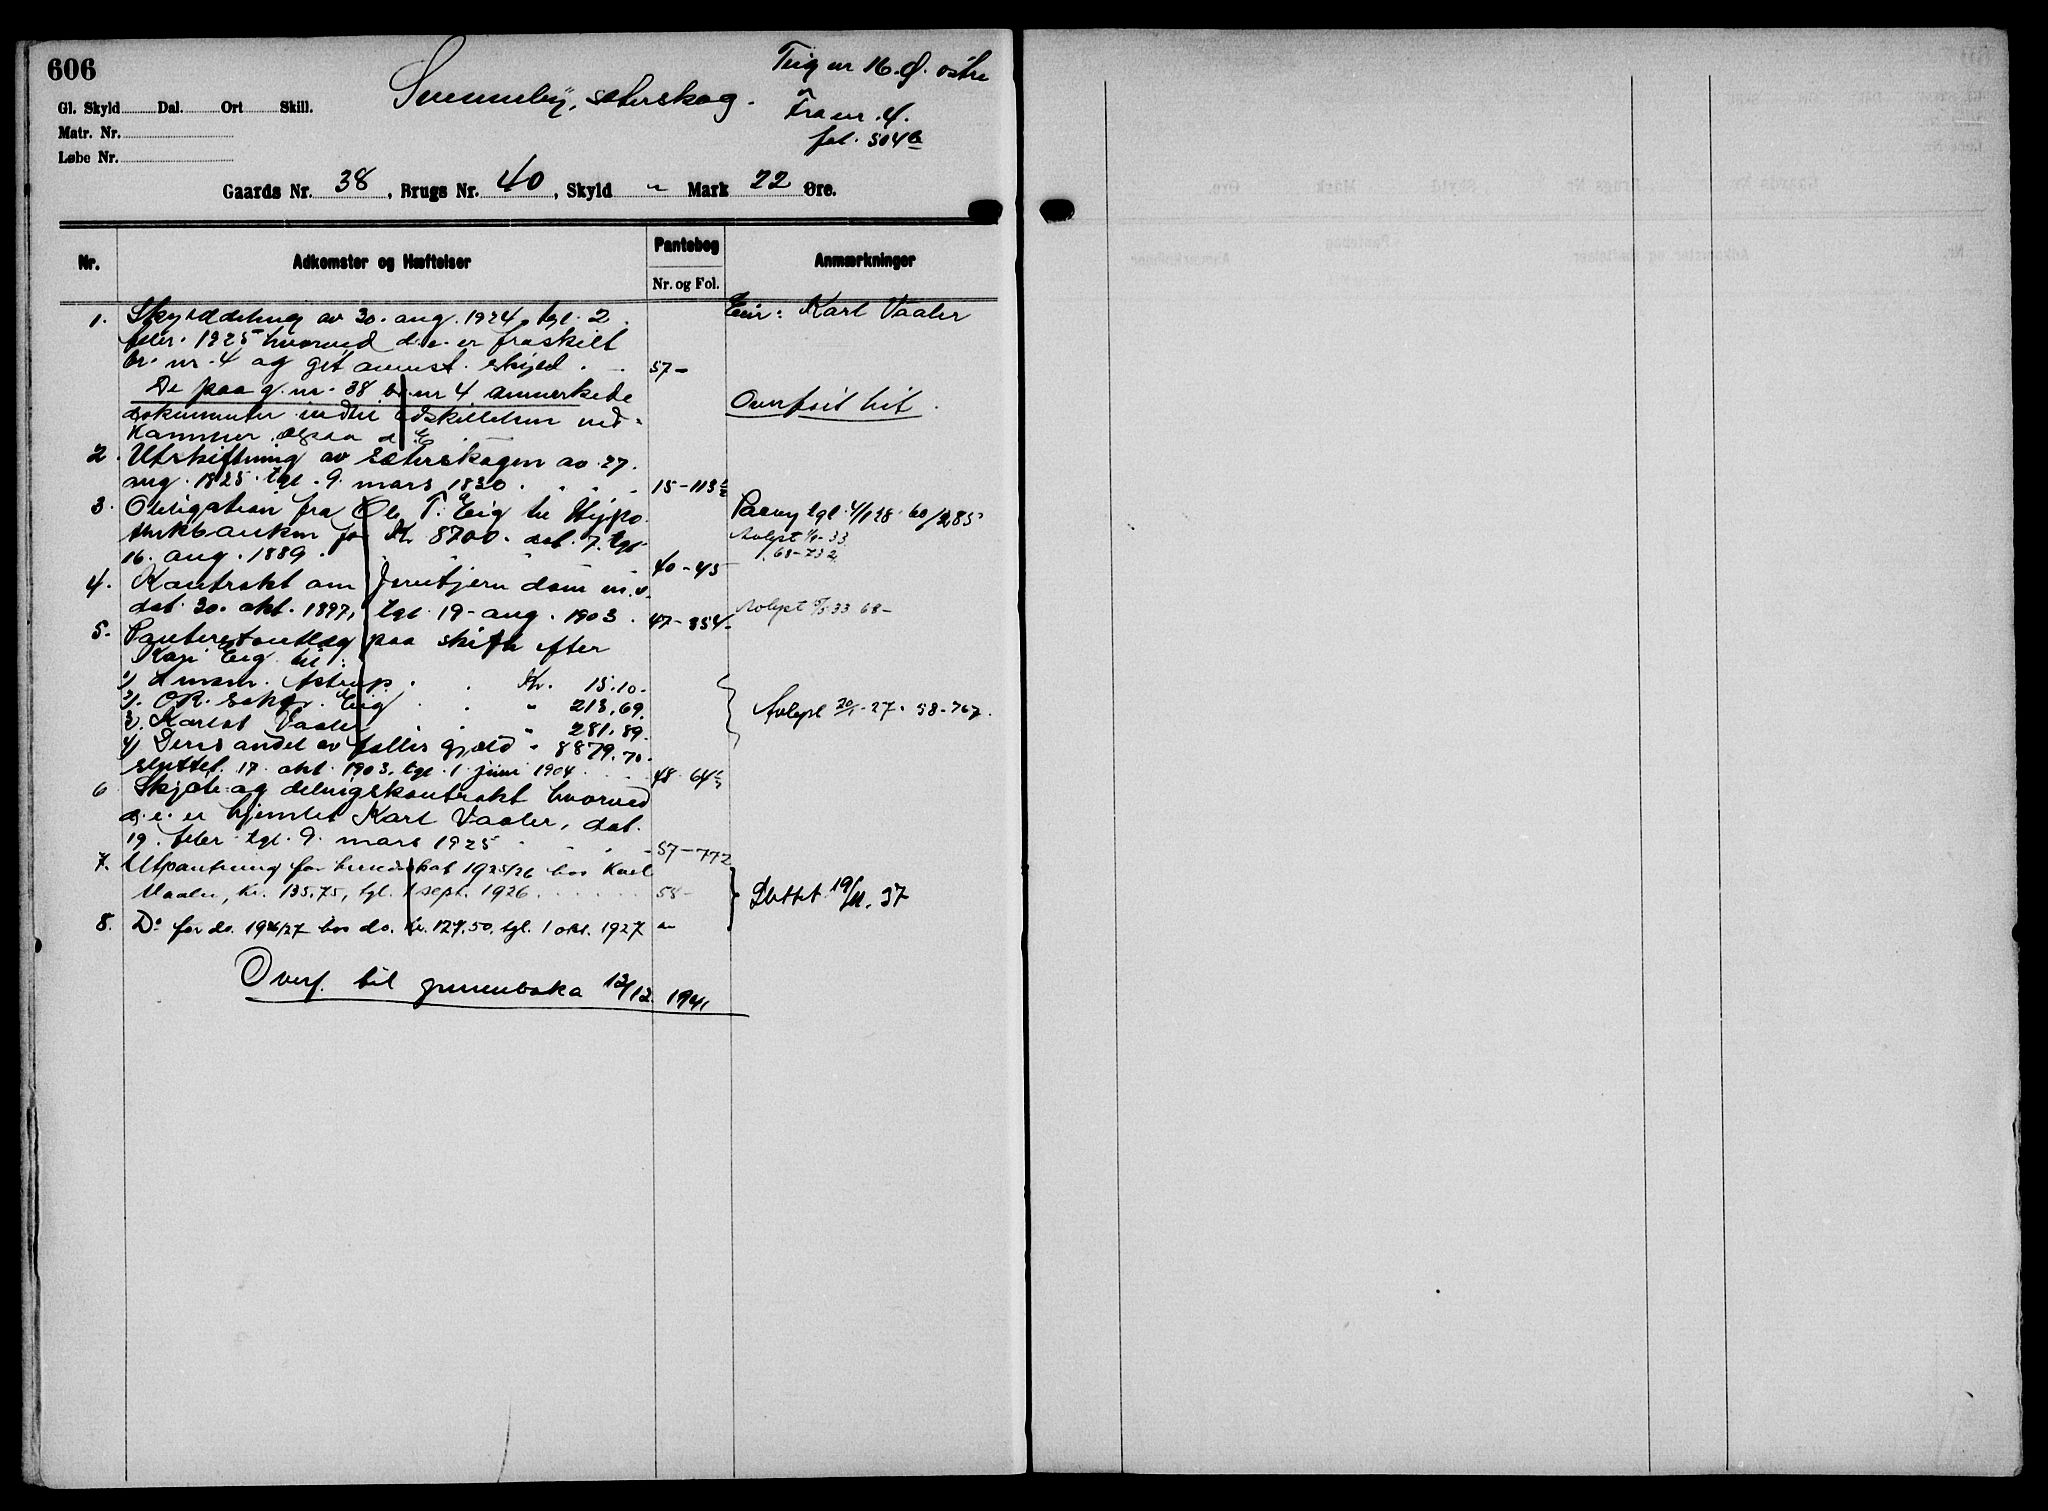 606
Teig nr 16. østre
Svenneby, sæterskog.
Fra nr. 4.
fol. 504b
Gl. Skyld Dal. Ort Skill.
Matr. Nr.
Løbe Nr.
Gaards Nr. 38, Brugs Nr. 40, Skyld " Mark 22 Øre.
Nr. Adkomster og Hæftelser Pantebog Anmærkninger
Nr. og Fol.
1. Skylddeling av 30. aug. 1924, tgl. 2 Eier: Karl Vaaler
febr. 1925 hvorved d. e. er fraskilt
br. nr. 4 og git anmst. skyld. 57-
De paa g. nr. 38 br. nr 4 anmerkede Overført hit.
dokumenter indtil adskillelsen ved-
kommer ogsaa d. e.
2. Utskiftning av sæterskogen av 27.
aug. 1825. tgl. 9. mars 1830. 15-113
3. Obligation fra Ole T. Eig til Hypo- tgl. 4/1 28 60/285
thekbanken for Kr 8700. dat. 7. tgl. Avlyst 33
16. aug. 1889. 40-45 68-732
4. Kontrakt om dam m. v.
dat. 30. okt. 1897, tgl. 19. aug. 1903. 47-854 Avlyst 33 68-
5. Panteretsutlæg paa skifte efter
Kari Eig til:
1) Astrup. Kr. 15.10.
2). Eig " 213.69.
3). Vaaler " 281.89. Avlyst 20/1-27. 58-767.
4) Deres andel av fælles gjæld " 8879.70.
sluttet 17. okt. 1903. tgl. 1. juni 1904. 48-64
6 Skjøte og delingskontrakt hvorved
d. e. er hjemlet Karl Vaaler, dat.
19. febr. tgl. 9. mars 1925 57-772
7. Utpantning for herredskat 1925/26 hos Karl
Vaaler, kr. 135,75, tgl. 1 sept. 1926 58- Slettet 19/11. 37
8. Do for do. 1926/27 hos do. kr. 127.50, tgl. 1 okt. 1927 "
Overf. til grunnboka 12/12. 1941